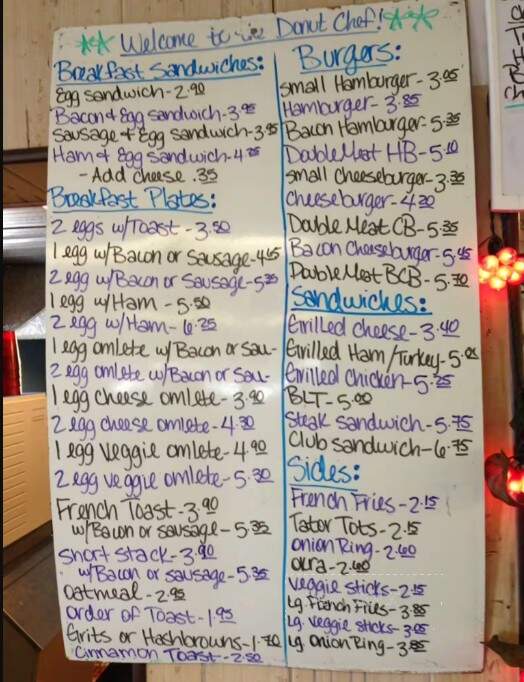 Welcome to the Donut Chef!
Breakfast Sandwiches:
Egg sandwich - 2.90
Bacon & Egg sandwich - 3.95
Sausage & Egg sandwich - 3.95
Ham & Egg sandwich - 4.25
- Add cheese .35
Breakfast Plates:
2 eggs w/Toast - 3.50
1 egg w/Bacon or Sausage - 4.45
2 egg w/Bacon or Sausage - 5.35
1 egg w/Ham - 5.50
2 egg w/Ham - 6.25
1 egg omlete w/Bacon or Sau-
2 egg omlete w/Bacon or Sau-
1 egg cheese omlete - 3.90
2 egg cheese omlete - 4.30
1 egg veggie omlete - 4.90
2 egg veggie omlete - 5.30
French Toast - 3.90
w/Bacon or sausage - 5.35
Short stack - 3.90
w/Bacon or sausage - 5.35
Oatmeal - 2.95
Order of Toast - 1.95
Grits or Hashbrowns - 1.70
Cinnamon Toast - 2.50
Burgers:
Small Hamburger - 3.05
Hamburger - 3.85
Bacon Hamburger - 5.35
Double Meat HB - 5.10
Small Cheeseburger - 3.35
Cheeseburger - 4.20
Double Meat CB - 5.35
Bacon Cheeseburger - 5.45
Double Meat BCB - 5.70
Sandwiches:
Grilled cheese - 3.40
Grilled Ham/Turkey - 5.
Grilled chicken - 5.25
BLT - 5.00
Steak sandwich - 5.75
Club sandwich - 6.75
Sides:
French Fries - 2.15
Tator Tots - 2.15
Onion Ring - 2.60
Okra - 2.60
Veggie sticks - 2.15
Lg. French Fries - 3.85
Lg. Veggie sticks - 3.05
Lg. Onion Ring - 3.85